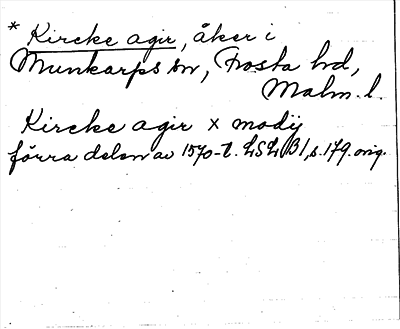 * Kircke agir, åker i
Munkarps sn, Frosta hd,
Malm. l.
Kircke agir x modij
förra delen av 1570-t. LSL B1, s. 179. orig.